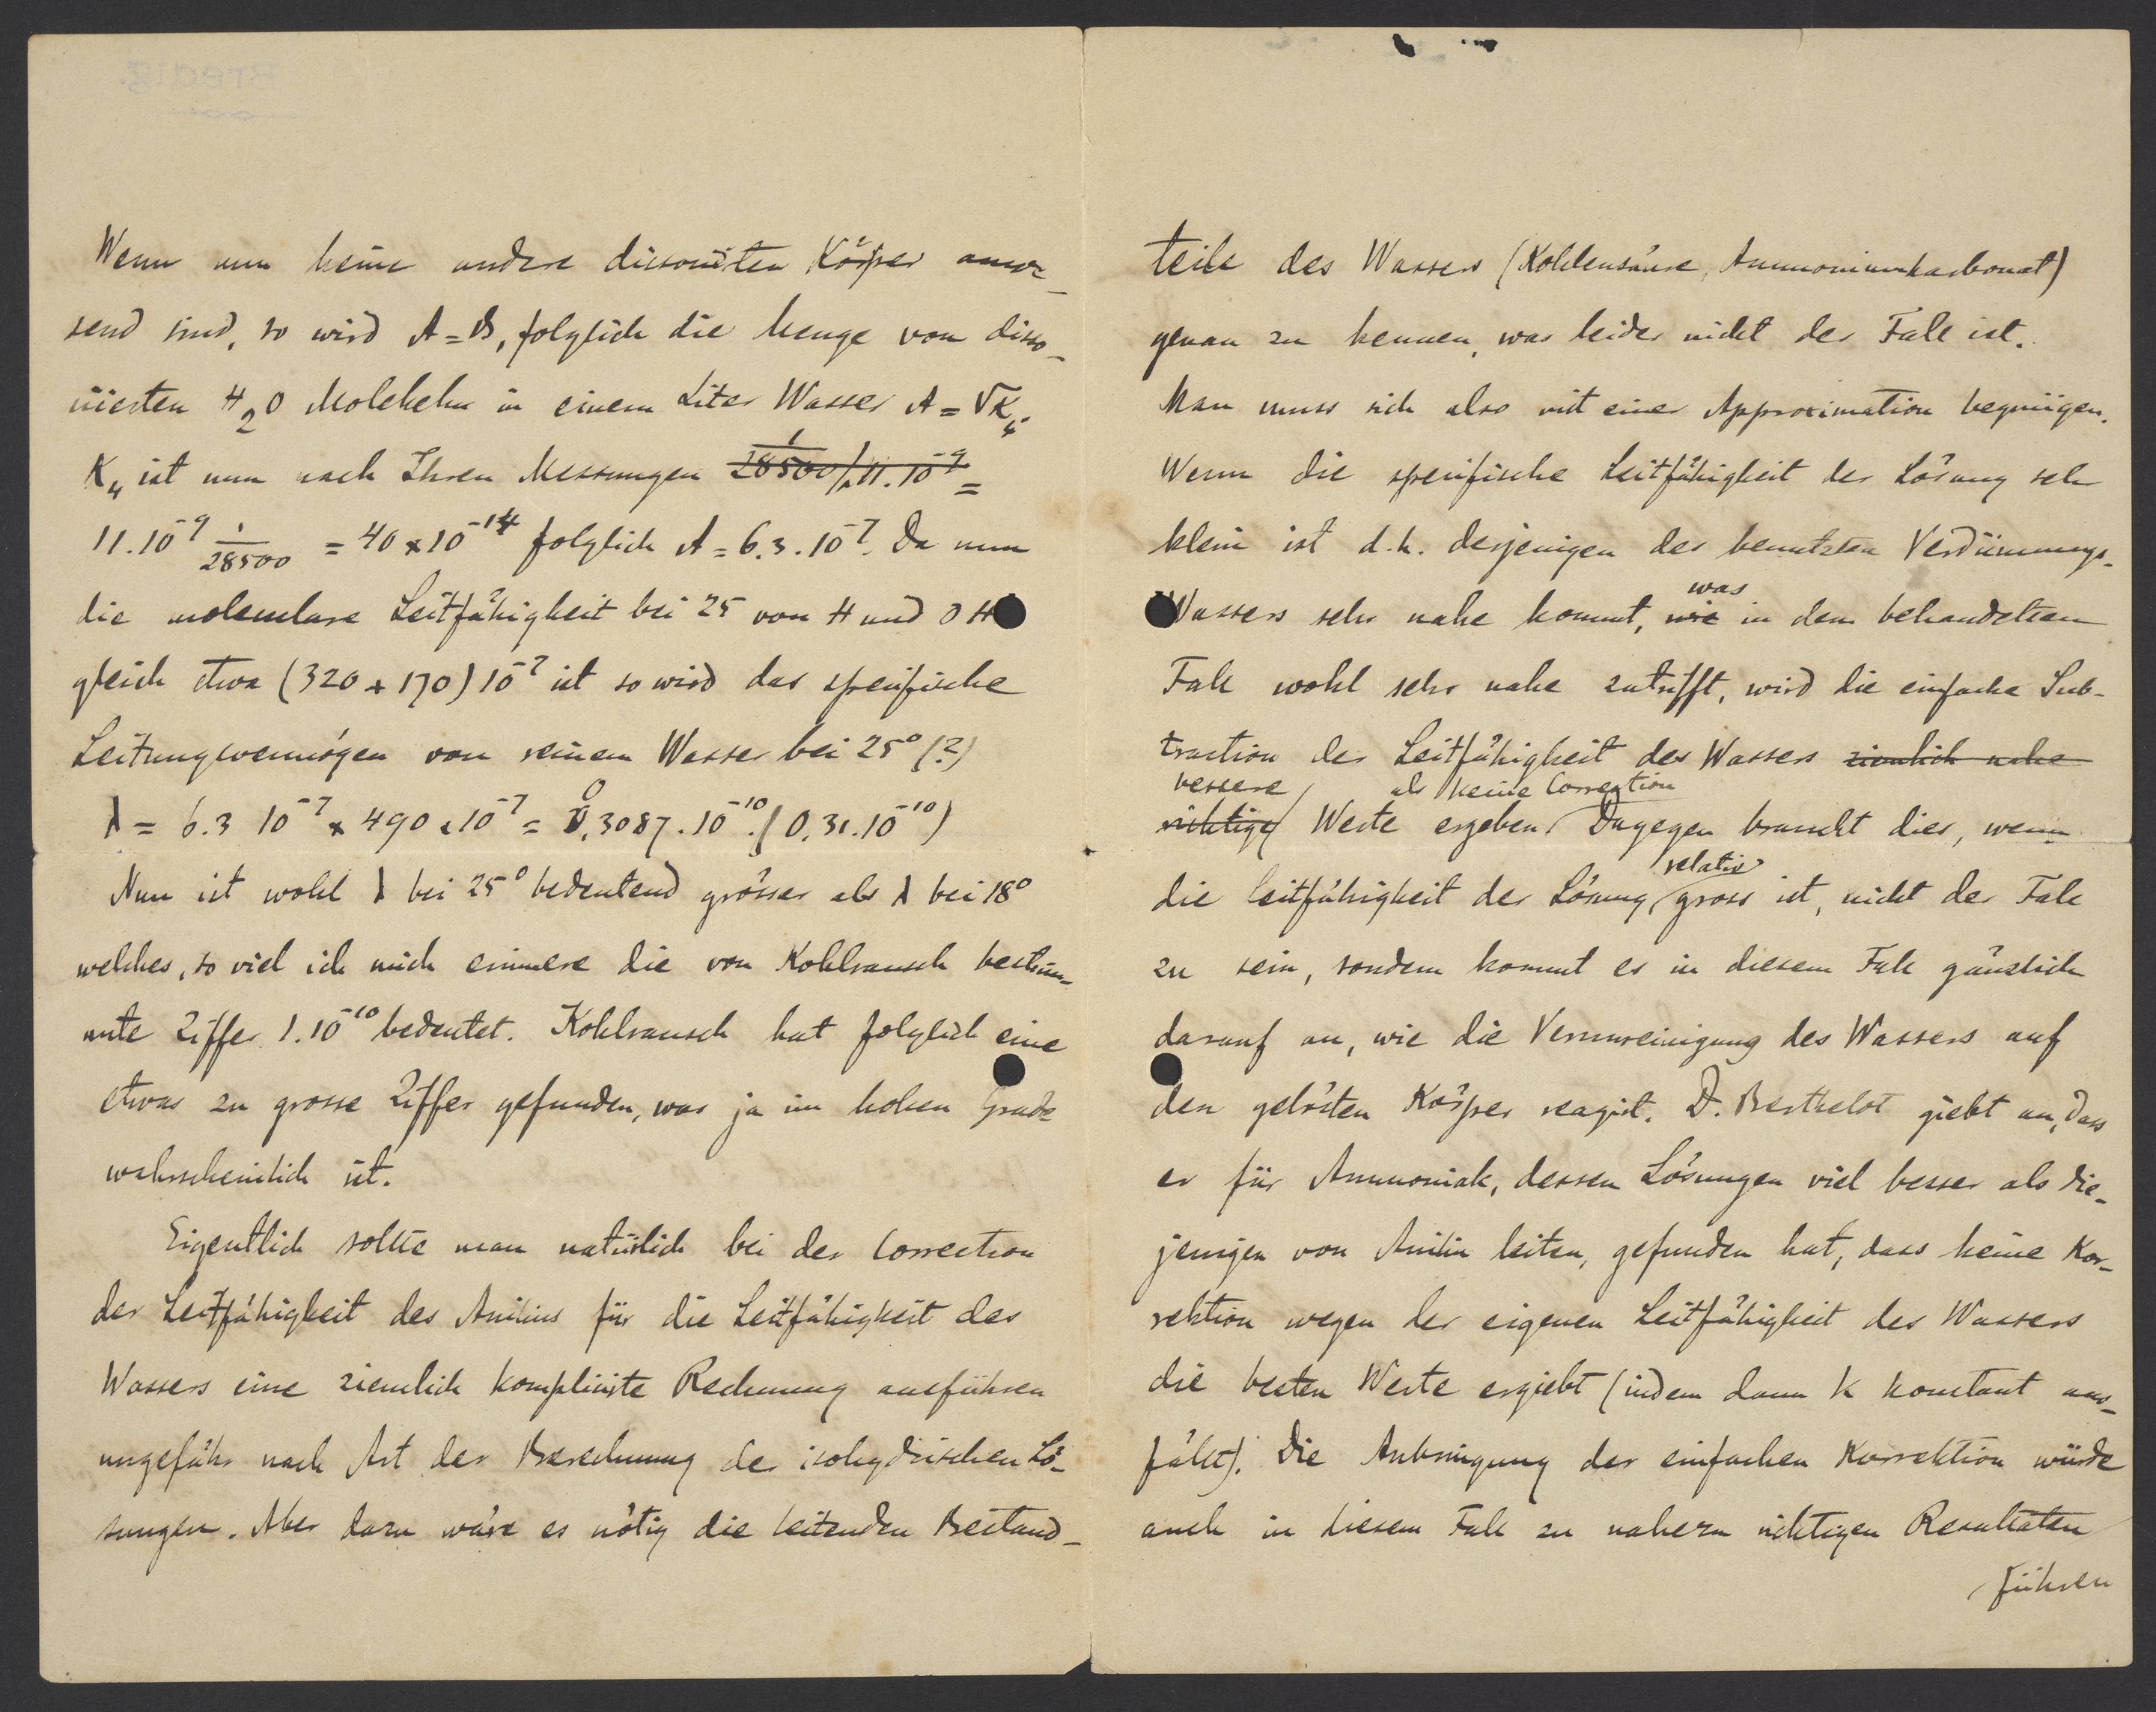 Wenn nun keine andere dissociirten Körper anwe-
send sind, so wird A = B, folglich die Menge von disso-
ciierten H₂O Molekeln in einem Liter Wasser A = √K₄.
K₄ ist nun nach Ihren Messungen 1/28500 / 11.10⁻⁹ =
11.10⁻⁹ 1/28500 = 40 x 10⁻¹⁴ folglich A = 6.3.10⁻⁷. Da nun
die moleculare Leitfähigkeit bei 25 von H und OH
gleich etwa (320 + 170) 10⁻⁷ ist so wird das specifische
Leitungsvermögen von reinem Wasser bei 25° (?)
λ = 6.3 10⁻⁷ x 490 x 10⁻⁷ = 0,3087.10⁻¹⁰. (0,31.10⁻¹⁰)
Nun ist wohl λ bei 25° bedeutend grösser als λ bei 18°
welches, so viel ich mich erinnere die von Kohlrausch bestim-
mte Ziffer 1.10⁻¹⁰ bedeutet. Kohlrausch hat folglich eine
etwas zu grosse Ziffer gefunden, was ja im hohen Grade
wahrscheinlich ist.
Eigentlich sollte man natürlich bei der Correction
der Leitfähigkeit des Anilins für die Leitfähigkeit des
Wassers eine ziemlich komplicirte Rechnung ausführen
ungefähr nach Art der Berechnung der isohydrischen Lö-
sungen. Aber dazu wäre es nötig die leitenden Bestand-
teile des Wassers (Kohlensäure, Ammoniumkarbonat)
genau zu kennen, was leider nicht der Fall ist.
Man muss sich also mit einer Approximation begnügen.
Wenn die specifische Leitfähigkeit der Lösung sehr
klein ist d.h. derjenigen des benutzten Verdünnungs-
was
Wassers sehr nahe kommt, wie in dem behandelten
Fall wohl sehr nahe zutrifft, wird die einfache Sub-
traction der Leitfähigkeit des Wassers ziemlich nahe
bessere als keine Correction
richtige Werte ergeben. Dagegen braucht dies, wenn
relativ
die Leitfähigkeit der Lösung gross ist, nicht der Fall
zu sein, sondern kommt es in diesem Fall gänzlich
darauf an, wie die Verunreinigung des Wassers auf
den gelösten Körper reagirt. D. Berthelot giebt an, dass
er für Ammoniak, dessen Lösungen viel besser als die-
jenigen von Anilin leiten, gefunden hat, dass keine Kor-
rektion wegen der eigenen Leitfähigkeit des Wassers
die besten Werte ergiebt (indem dann K konstant aus-
fällt). Die Anbringung der einfachen Korrektion würde
auch in diesem Fall zu nahezu richtigen Resultaten
führen